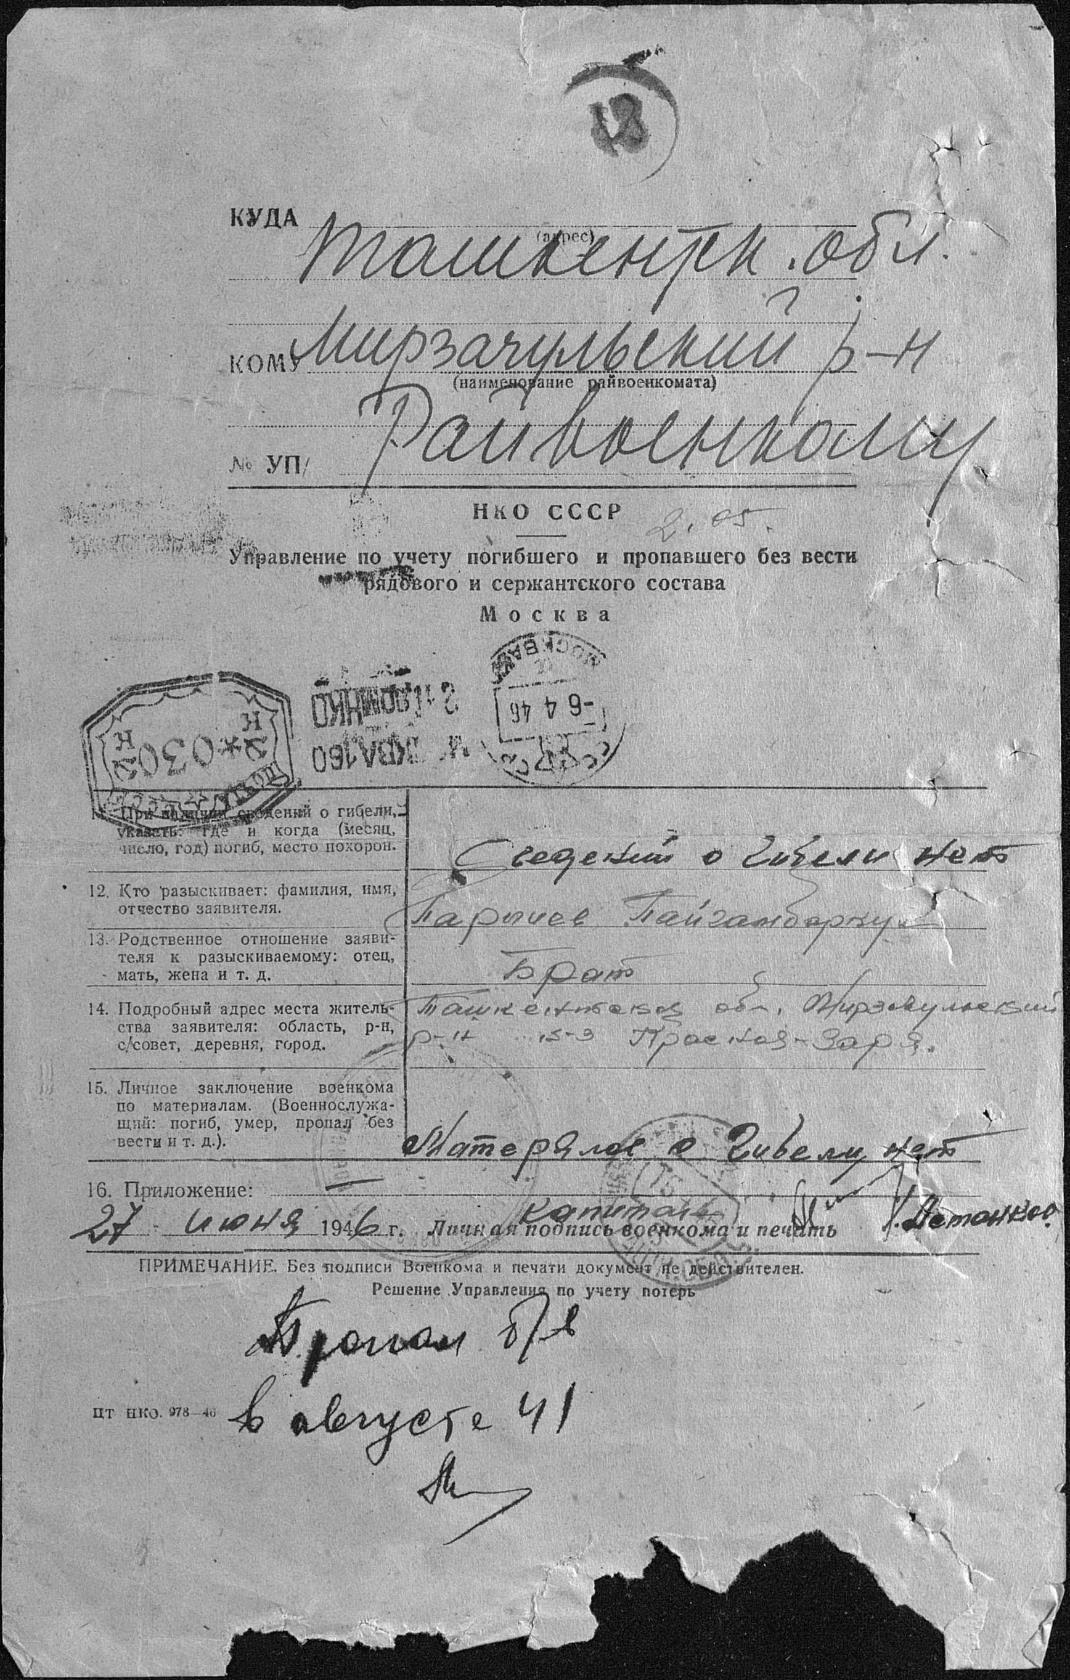 18
КУДА
(адрес)
Ташкентск. обл.
КОМУ Мирзачульский р-н
(наименование райвоенкомата)
Райвоенкому
№ УП/
НКО СССР
2.05.
Управление по учету погибшего и пропавшего без вести
рядового и сержантского состава
Москва
МОСКВА
-6 4 46
СССР
030
При наличии сведений о гибели,
указать: где и когда (месяц,
число, год) погиб, место похорон.
Сведений о гибели нет
12. Кто разыскивает: фамилия, имя,
отчество заявителя.
Пайгамбаркул
13. Родственное отношение заяви-
теля к разыскиваемому: отец,
мать, жена и т. д.
Брат
14. Подробный адрес места житель-
ства заявителя: область, р-н,
с/совет, деревня, город.
Ташкентская обл. Мирзачульский
р-н к-з Красная-Заря.
15. Личное заключение военкома
по материалам. (Военнослужа-
щий: погиб, умер, пропал без
вести и т. д.).
Матерялов о гибели нет
16. Приложение:
капитан
27 июня 1946 г. Личная подпись военкома и печать
ПРИМЕЧАНИЕ. Без подписи Военкома и печати документ не действителен.
Решение Управления по учету потерь
Пропал б/в
в августе 41
ЦТ НКО. 978—46